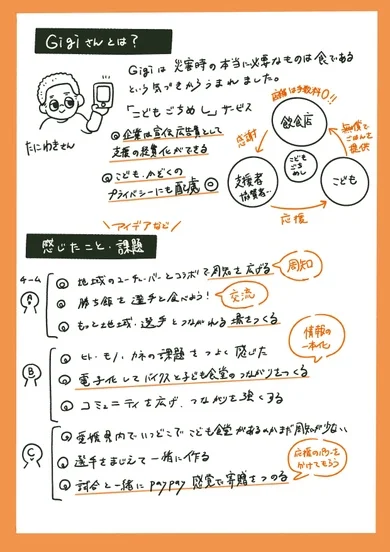 Gigiさんとは？
Gigiは災害時の本当に必要なものは食である
という気づきからうまれました。
「こどもごちめし」サービス
企業は宣伝広告費として
支援の経費化ができる
こども・かぞくの
プライバシーにも配慮
たにわきさん
店舗は手数料0!!
飲食店
感謝
無償で
ごはんを
提供
こども
ごち
めし
支援者
協賛者…
こども
応援
アイデアなど
感じたこと・課題
チーム
A
地域のユーチューバーとコラボで周知を広げる
周知
勝ち飯を選手と食べよう！
交流
もっと地域・選手とつながれる場をつくる
情報の
一本化
B
ヒト・モノ・カネの課題をつよく感じた
電子化してバイクスと子ども食堂のつながりをつくる
コミュニティを広げ、つながりを強くする
C
愛媛県内でいつどこでこども食堂があるのかまだ周知が少ない
選手をまじえて一緒に作る
応援のパワーを
かけてもらう
試合と一緒にpaypay感覚で寄贈をつのる